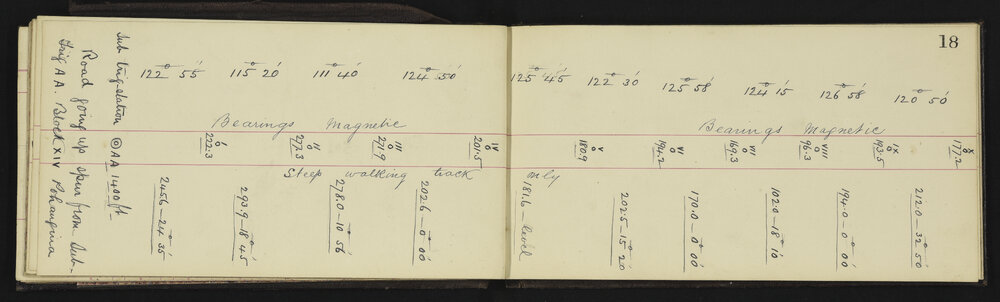 18
Road going up spur from Sub-
Trig A A. Block XIV Pohangina
Sub trig station @ AA 1400 ft
122° 55'
115° 20'
111° 40'
124° 50'
125° 45'
122° 30'
125° 58'
124° 15'
126° 58'
120° 50'
Bearings Magnetic
Bearings Magnetic
I 222.3
II 277.3
III 271.9
IV 201.5
V 180.9
VI 194.2
VII 169.3
VIII 96.3
IX 193.5
X 177.2
Steep walking track only
245.6 – 24° 35'
293.9 – 18° 45'
278.0 – 10° 56'
202.6 – 0° 00'
181.6 – level
202.5 – 15° 20'
170.0 – 0° 00'
102.0 – 18° 10'
194.0 – 0° 00'
212.0 – 32° 50'